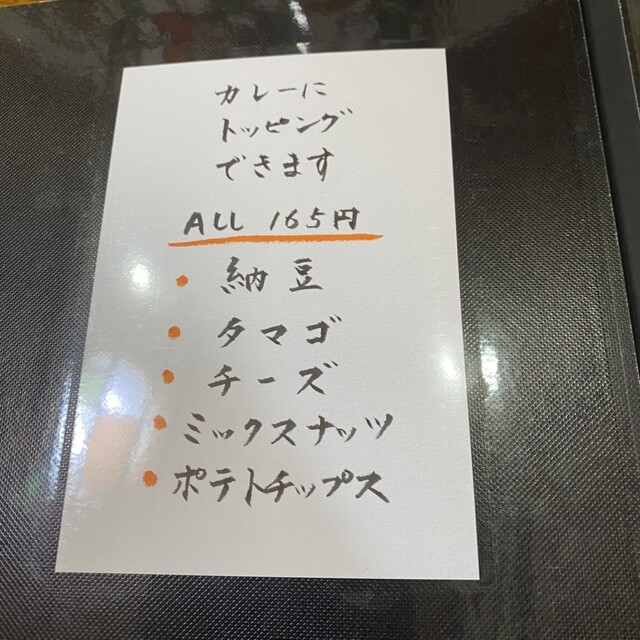 カレーに
トッピング
できます
ALL 165円
・納豆
・タマゴ
・チーズ
・ミックスナッツ
・ポテトチップス